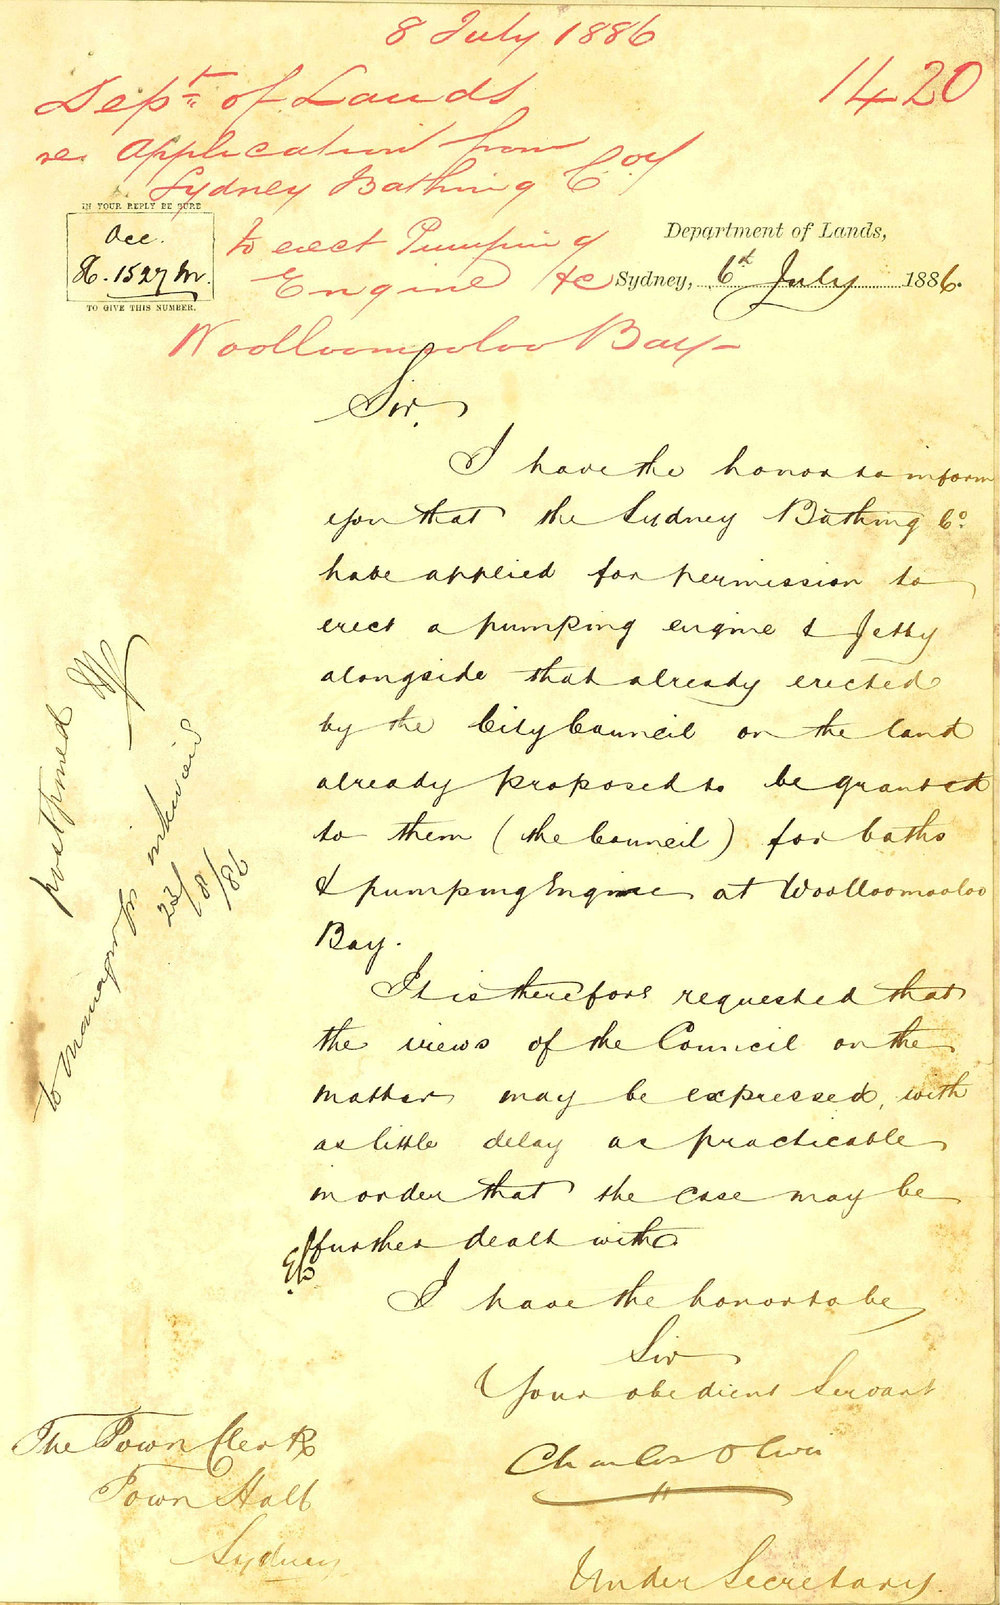 8 July 1886
1420
Dept. of Lands
re. Application from
Sydney Bathing Coy
to erect Pumping
Engine &c
Woolloomooloo Bay—
IN YOUR REPLY BE SURE
Occ.
86.1527 Mr.
TO GIVE THIS NUMBER.
Department of Lands,
Sydney, 6th July 1886.
Sir,
I have the honor to inform
you that the Sydney Bathing Co.
have applied for permission to
erect a pumping engine & Jetty
alongside that already erected
by the City Council on the land
already proposed to be granted
to them (the Council) for baths
& pumping Engine at Woolloomooloo
Bay.
It is therefore requested that
the views of the Council on the
matter may be expressed, with
as little delay as practicable
in order that the case may be
further dealt with.
I have the honor to be
Sir
Your obedient Servant
Charles Oliver
Under Secretary.
The Town Clerk
Town Hall
Sydney
postponed
to Manager for interview
23/8/86